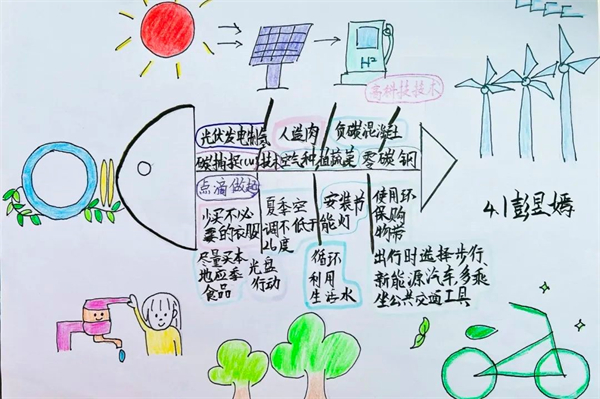 H²
高科技技术
光伏发电制氢
人造肉
负碳混凝土
碳捕捉(CCUS)技术
空气种植蔬菜
零碳钢
点滴做起
少买不必
要的衣服
夏季空
调不低于
26度
安装节
能灯
使用环
保购
物带
尽量买本
地应季
食品
光盘
行动
循环
利用
生活水
出行时选择步行、
新能源汽车,多乘
坐公共交通工具
4.1彭昱嫣